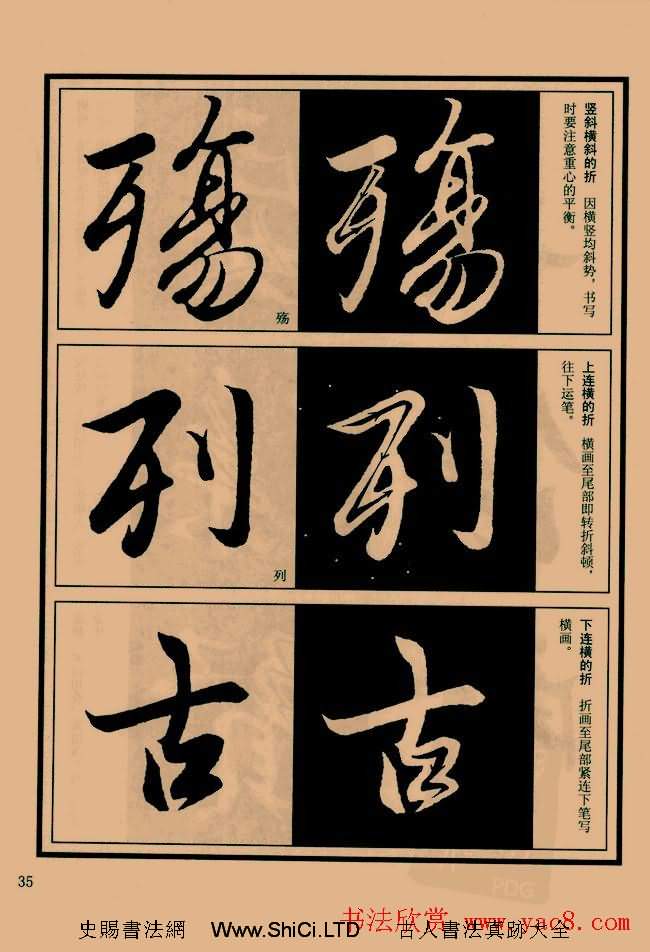 竖斜横斜的折　因横竖均斜势，书写
时要注意重心的平衡。
殇
殇
殇
上连横的折　横画至尾部即转折斜顿，
往下运笔。
列
列
列
下连横的折　折画至尾部紧连下笔写
横画。
古
古
35
书法欣赏 www.yac8.com
史賜書法網 Www.ShiCi.LTD 古人書法真跡大全
PDG